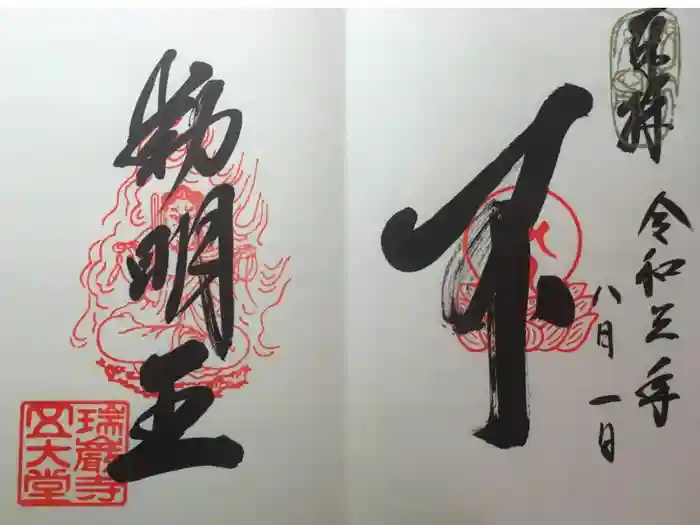 奉拝
令和三年
八月一日
不
動明王
瑞巌寺
五大堂